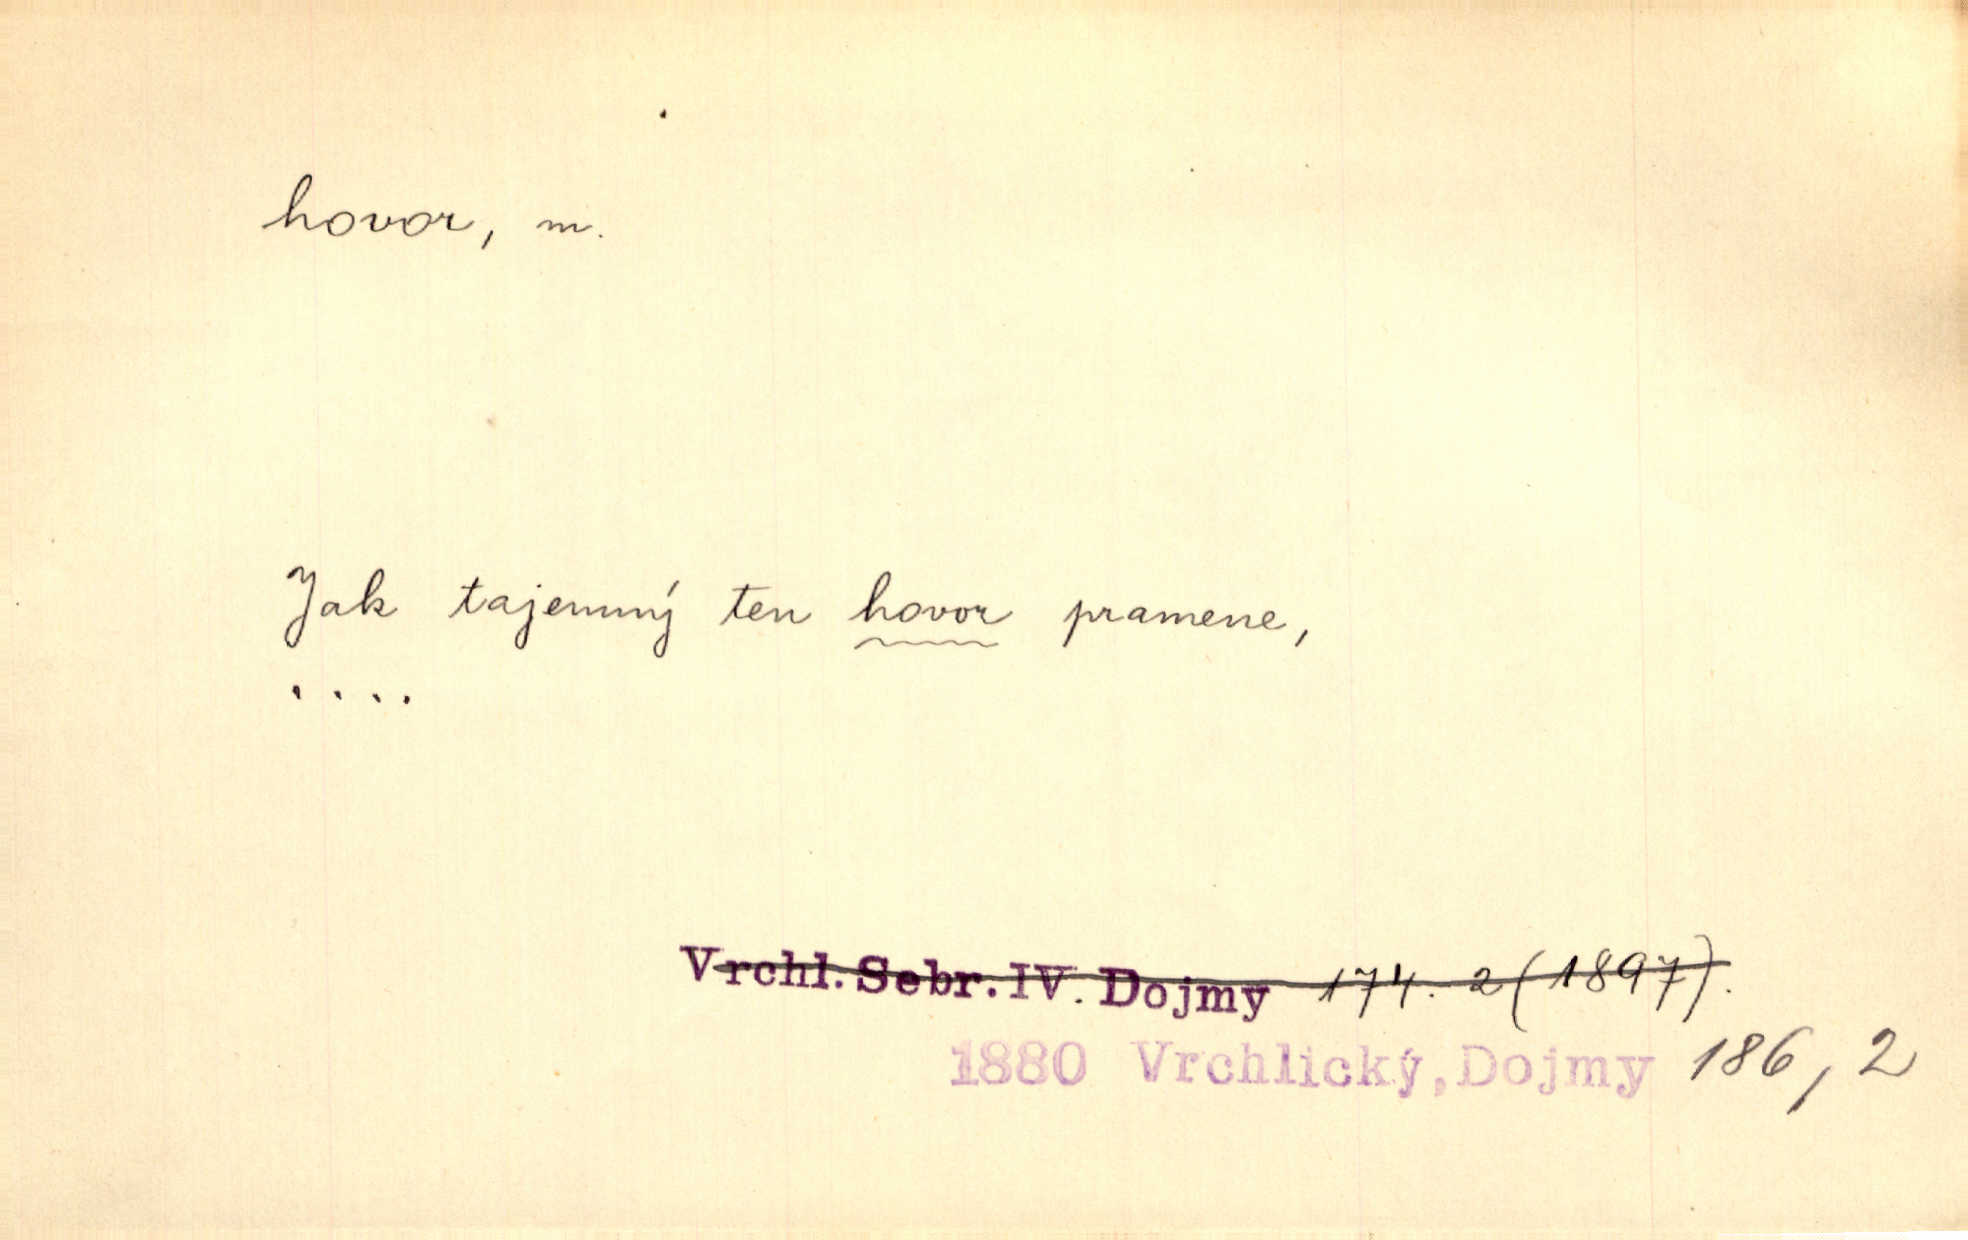 hovor, m.
Jak tajemný ten hovor pramene,
....
Vrchl. Sebr. IV. Dojmy 174. 2 (1897).
1880 Vrchlický, Dojmy 186, 2